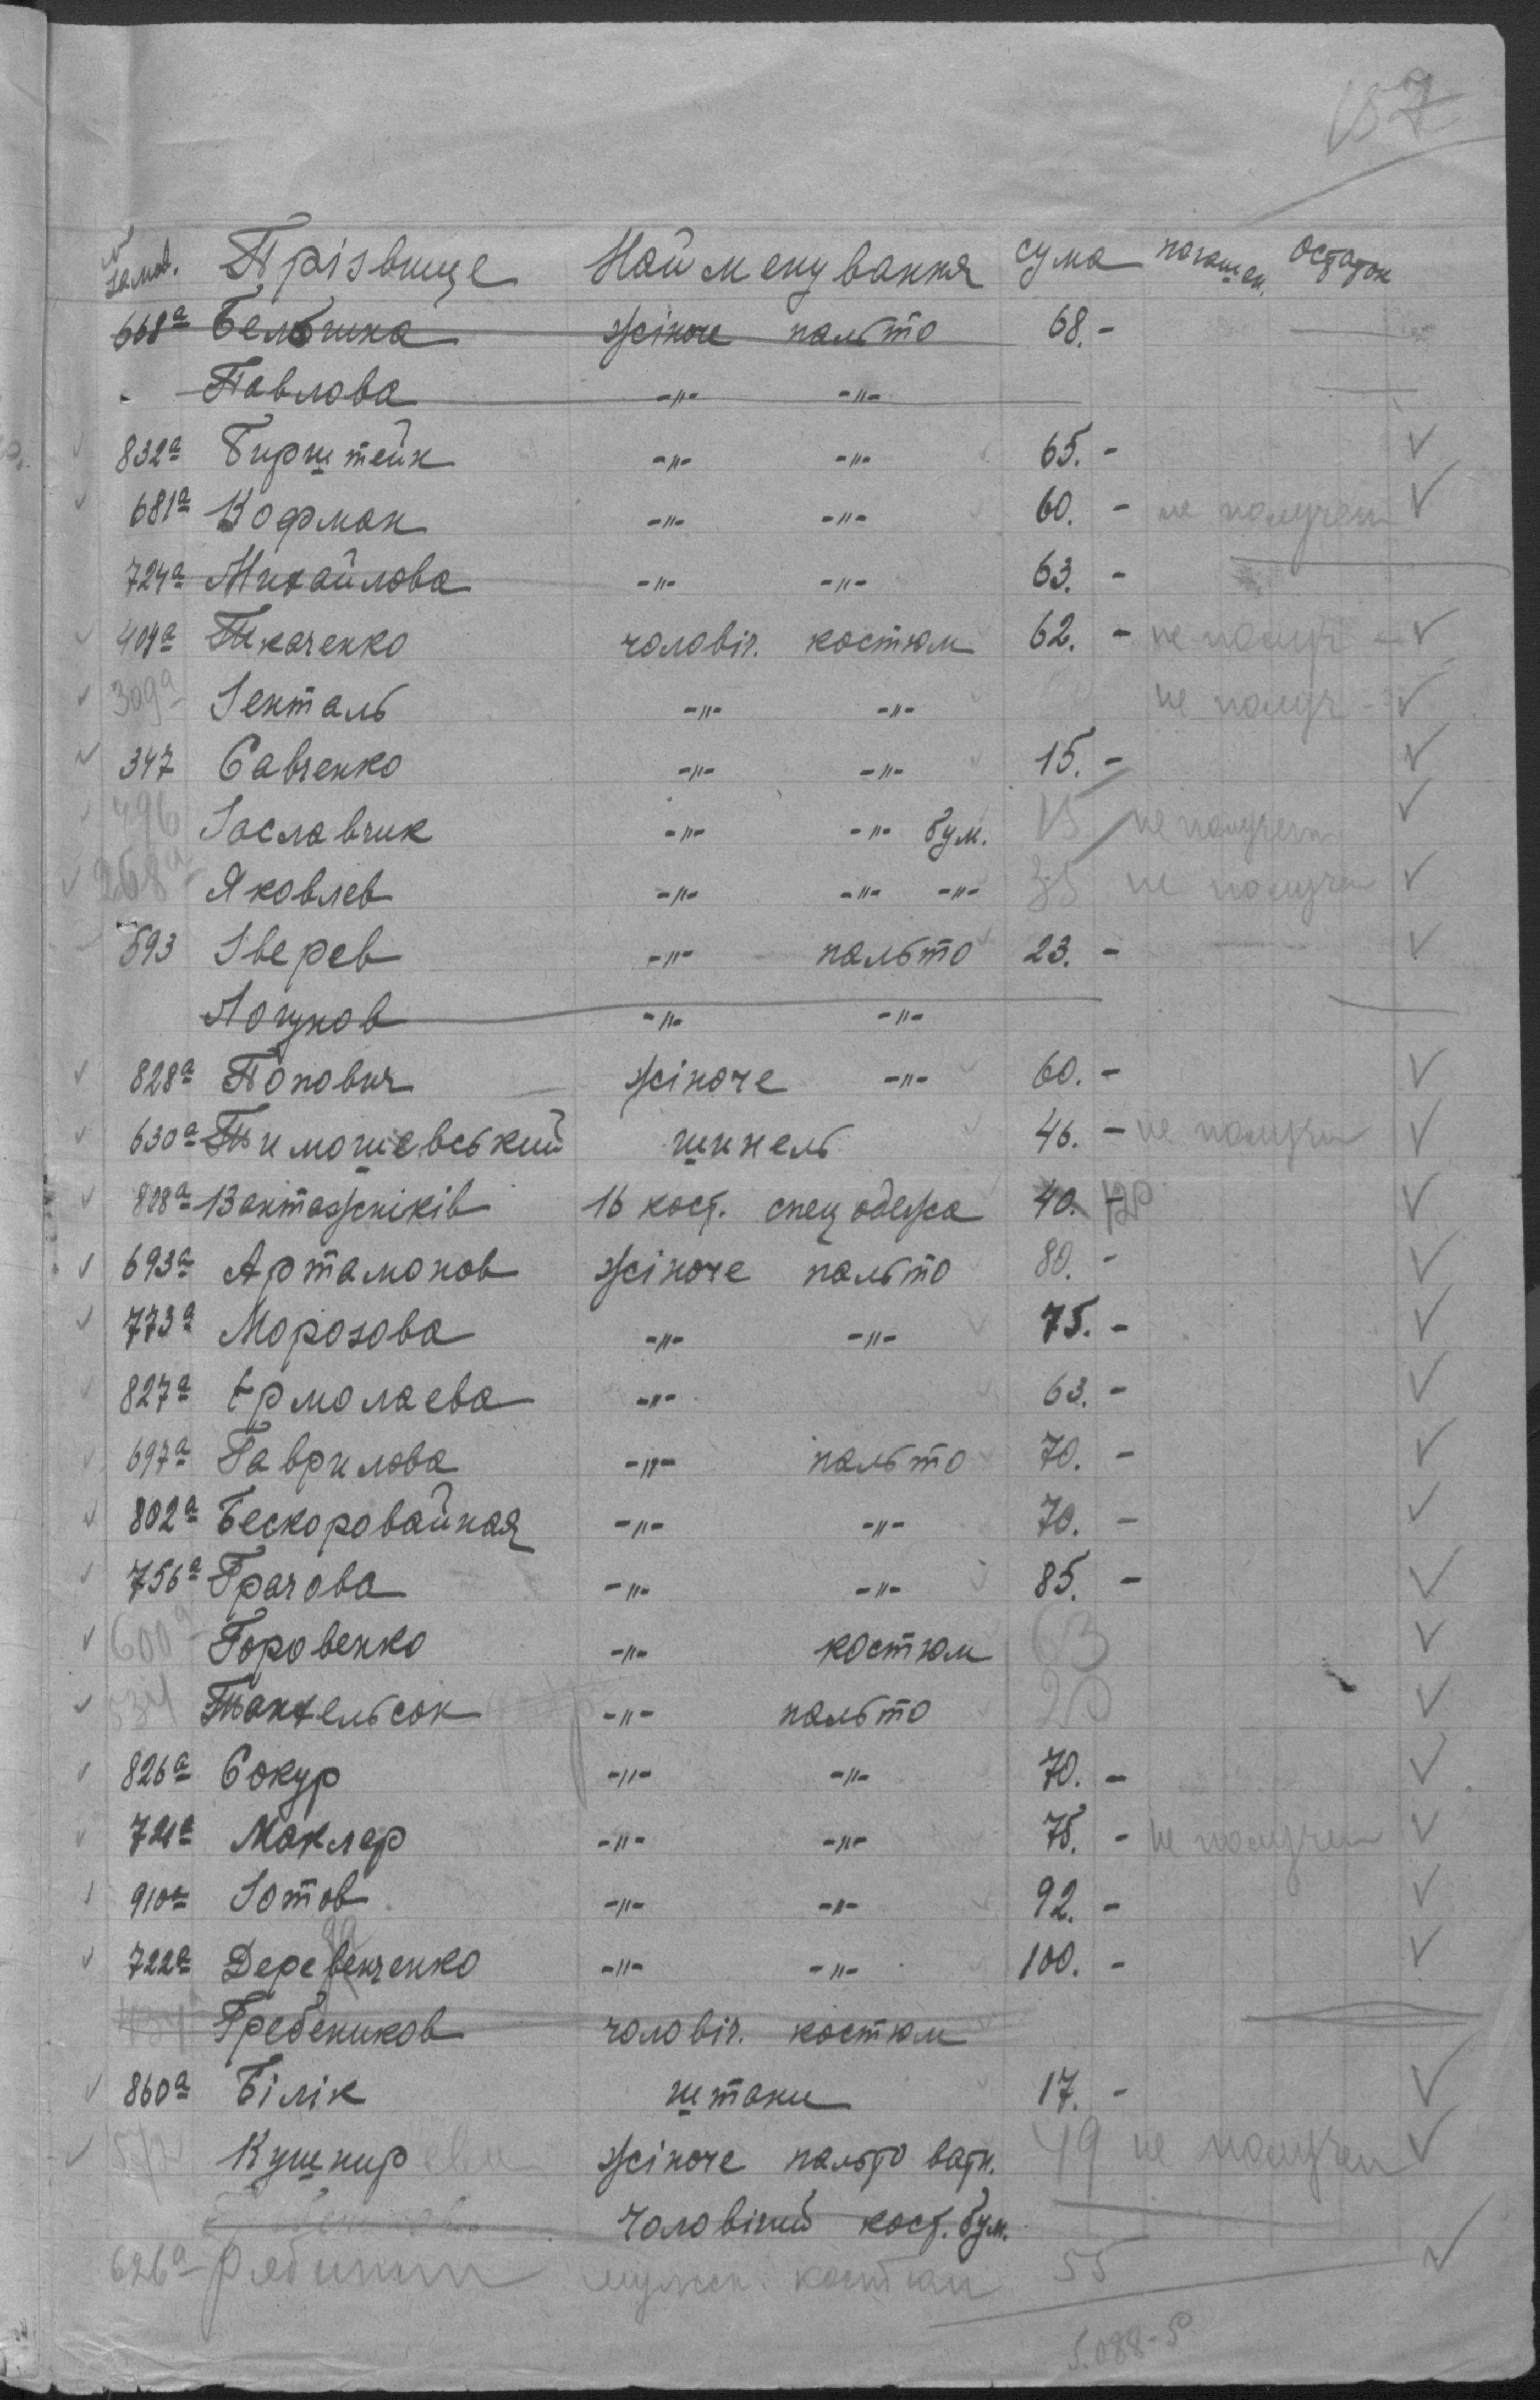 157
N замов. Прізвище Найменування сума погашен. Остаток
668а Бельшка жіноче пальто 68.-
Павлова -"- -"-
832а Бирштейн -"- -"- 65.- ✓
681а Кофман -"- -"- 60.- не получен ✓
724а Михайлова -"- -"- 63.-
409а Ткаченко чоловіч. костюм 62.- не получ - ✓
309а Зенталь -"- -"- не получ - ✓
347 Савченко -"- -"- 15.- ✓
496 Заславчик -"- -"- бум. 15 не получен ✓
268а Яковлев -"- -"- -"- 35 не получен ✓
593 Зверев -"- пальто 23.- ✓
Логунов -"- -"-
828а Попович жіноче -"- 60.- ✓
630а Тимошевський шинель 46.- не получен ✓
808а Вантажників 16 кост. спецодежа 40. 120 ✓
693а Артамонов жіноче пальто 80.- ✓
773а Морозова -"- -"- 75.- ✓
827а Єрмолаева -"- 63.- ✓
697а Гаврилова -"- пальто 70.- ✓
802а Бескоровайная -"- -"- 70.- ✓
756а Грачова -"- -"- 85.- ✓
600а Горовенко -"- костюм 63 ✓
534 Танхельсон -"- пальто 20 ✓
826а Сокур -"- -"- 70.- ✓
721а Маклер -"- -"- 75.- не получен ✓
910а Зотов -"- -"- 92.- ✓
722а Деревенченко -"- -"- 100.- ✓
Гребеников чоловіч. костюм
860а Білік штани 17.- ✓
572 Кушнир жіноче пальто ватн. 49 не получен ✓
Чоловічий кост. бум.
626а Рябинин мужск. костюм 55 ✓
5.088-50